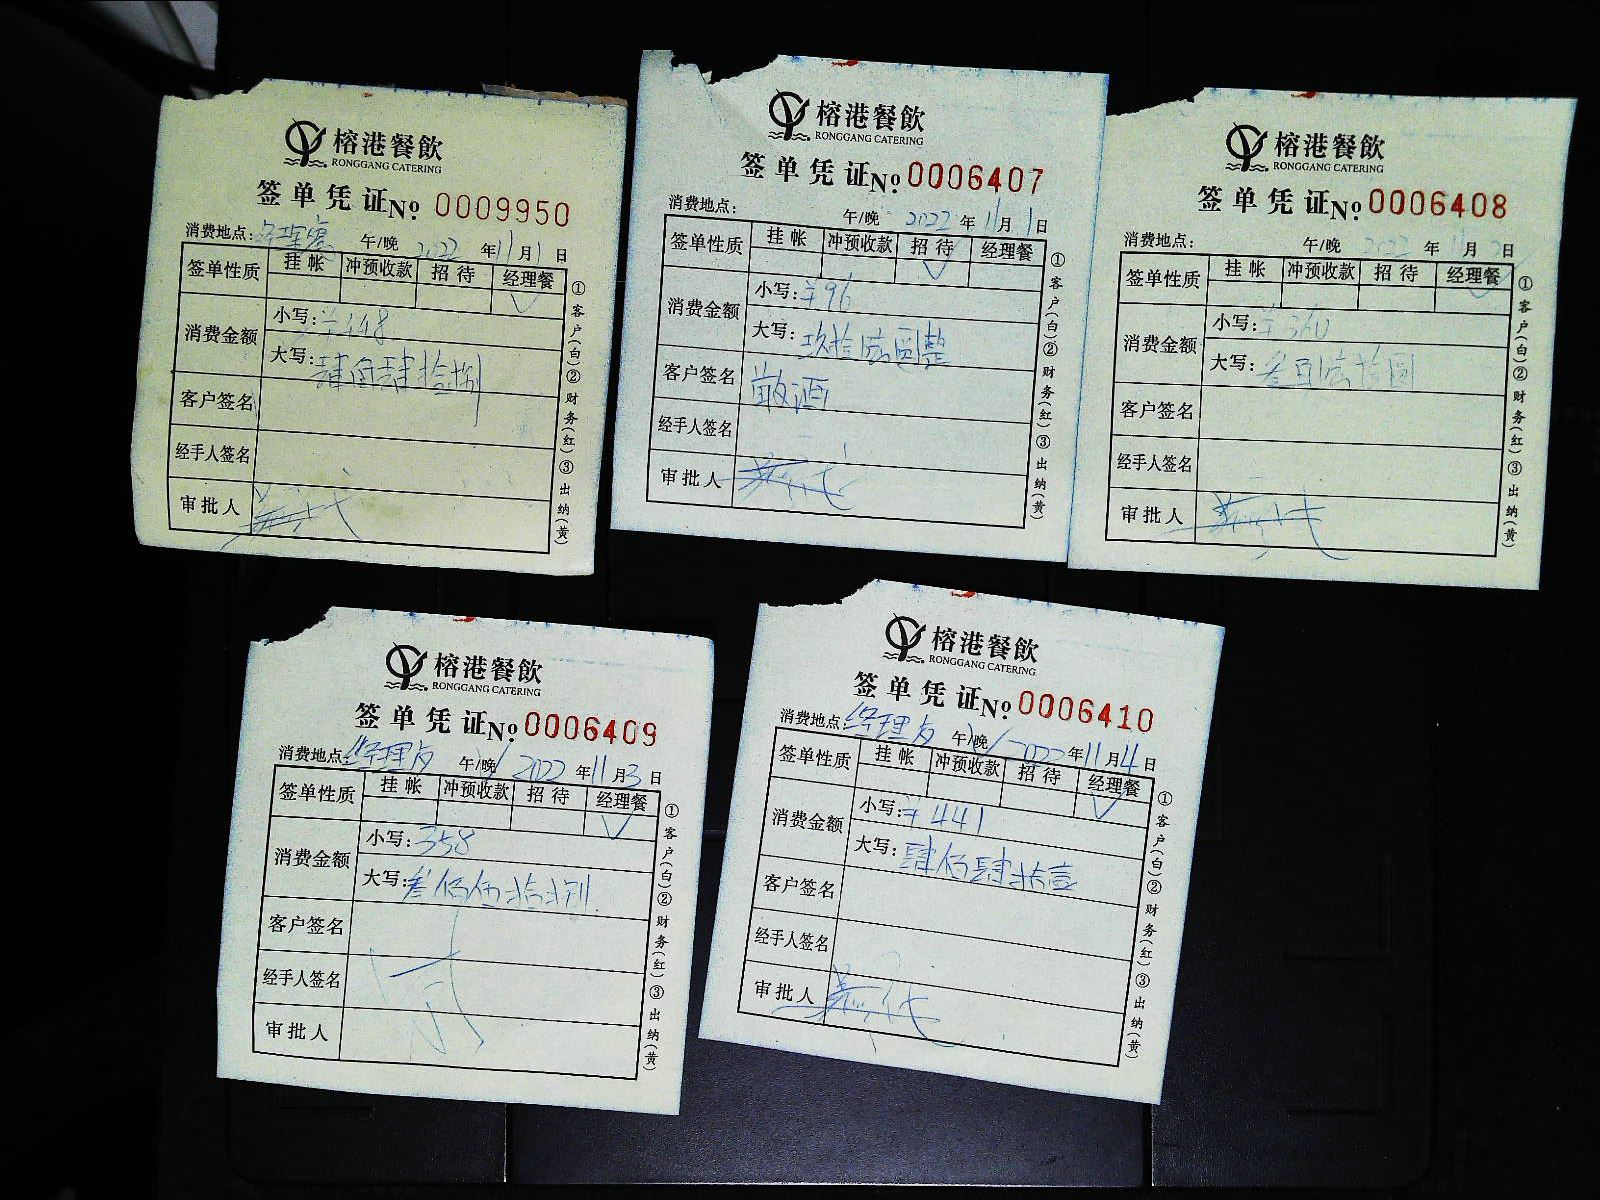 榕港餐飲
RONGGANG CATERING
签单凭证 No. 0009950
消费地点: 午/晚 2022 年 11 月 1 日
签单性质 挂帐 冲预收款 招待 经理餐
√
消费金额 小写: ¥448
大写: 肆佰肆拾捌
客户签名
经手人签名
审批人
①客户(白)②财务(红)③出纳(黄)
榕港餐飲
RONGGANG CATERING
签单凭证 No. 0006407
消费地点: 午/晚 2022 年 11 月 1 日
签单性质 挂帐 冲预收款 招待 经理餐
√
消费金额 小写: ¥96
大写: 玖拾陆圆整
客户签名 散酒
经手人签名
审批人
①客户(白)②财务(红)③出纳(黄)
榕港餐飲
RONGGANG CATERING
签单凭证 No. 0006408
消费地点: 午/晚 2022 年 11 月 2 日
签单性质 挂帐 冲预收款 招待 经理餐
√
消费金额 小写: ¥360
大写: 叁百陆拾圆
客户签名
经手人签名
审批人
①客户(白)②财务(红)③出纳(黄)
榕港餐飲
RONGGANG CATERING
签单凭证 No. 0006409
消费地点: 经理房 午/晚 2022 年 11 月 3 日
签单性质 挂帐 冲预收款 招待 经理餐
√
消费金额 小写: 358
大写: 叁佰伍拾捌
客户签名
经手人签名
审批人
①客户(白)②财务(红)③出纳(黄)
榕港餐飲
RONGGANG CATERING
签单凭证 No. 0006410
消费地点: 经理房 午/晚 2022 年 11 月 4 日
签单性质 挂帐 冲预收款 招待 经理餐
√
消费金额 小写: ¥441
大写: 肆佰肆拾壹
客户签名
经手人签名
审批人
①客户(白)②财务(红)③出纳(黄)